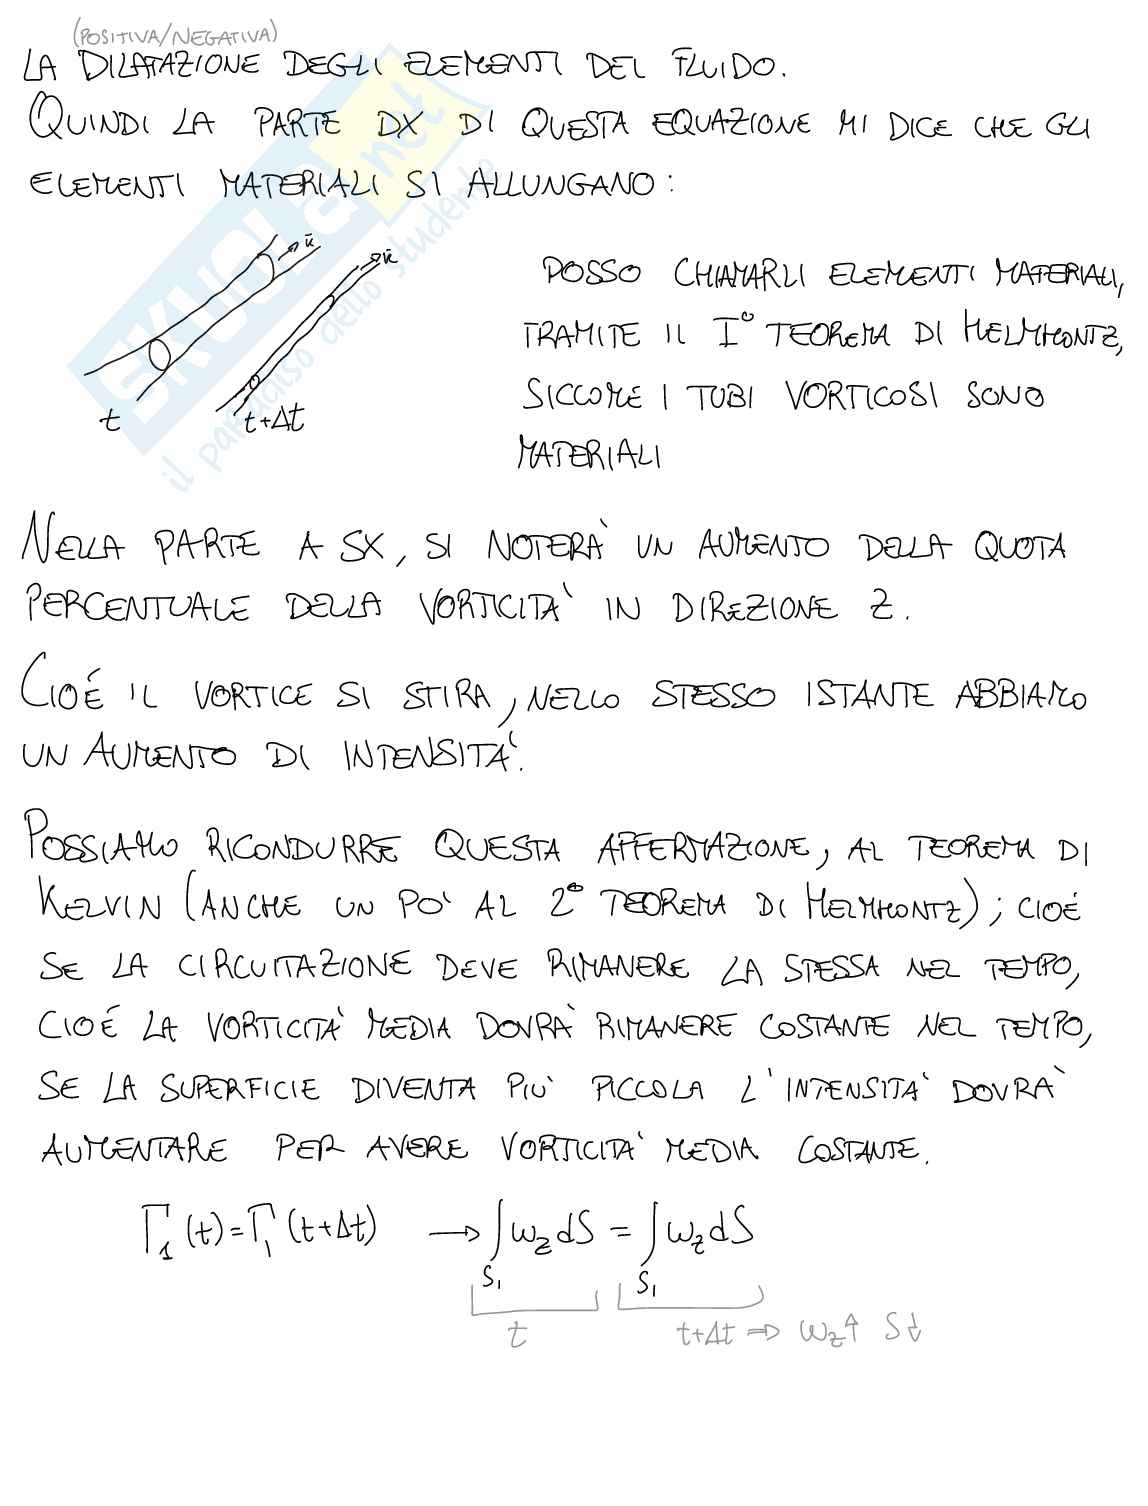 (POSITIVA/NEGATIVA)
LA DILATAZIONE DEGLI ELEMENTI DEL FLUIDO.
QUINDI LA PARTE DX DI QUESTA EQUAZIONE MI DICE CHE GLI
ELEMENTI MATERIALI SI ALLUNGANO:
k̄
k̄
t
t+Δt
POSSO CHIAMARLI ELEMENTI MATERIALI,
TRAMITE IL I° TEOREMA DI HELMHONTZ,
SICCOME I TUBI VORTICOSI SONO
MATERIALI
NELLA PARTE A SX, SI NOTERÀ UN AUMENTO DELLA QUOTA
PERCENTUALE DELLA VORTICITÀ IN DIREZIONE Z.
CIOÉ IL VORTICE SI STIRA, NELLO STESSO ISTANTE ABBIAMO
UN AUMENTO DI INTENSITÀ.
POSSIAMO RICONDURRE QUESTA AFFERMAZIONE, AL TEOREMA DI
KELVIN (ANCHE UN PO' AL 2° TEOREMA DI HELMHONTZ); CIOÉ
SE LA CIRCUITAZIONE DEVE RIMANERE LA STESSA NEL TEMPO,
CIOÉ LA VORTICITÀ MEDIA DOVRÀ RIMANERE COSTANTE NEL TEMPO,
SE LA SUPERFICIE DIVENTA PIÙ PICCOLA L'INTENSITÀ DOVRÀ
AUMENTARE PER AVERE VORTICITÀ MEDIA COSTANTE.
Γ₁(t)=Γ₁(t+Δt) → ∫ω_z dS = ∫ω_z dS
S₁ S₁
t t+Δt ⇒ ω_z↑ S↓
SKUOLA.net
il paradiso dello studente